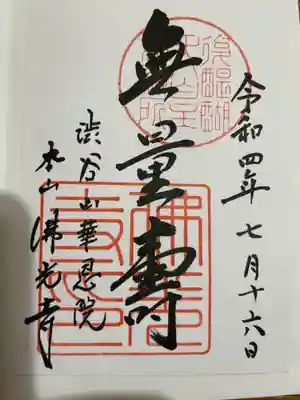 令和四年七月十六日
無量壽
渋谷山華恩院
本山佛光寺